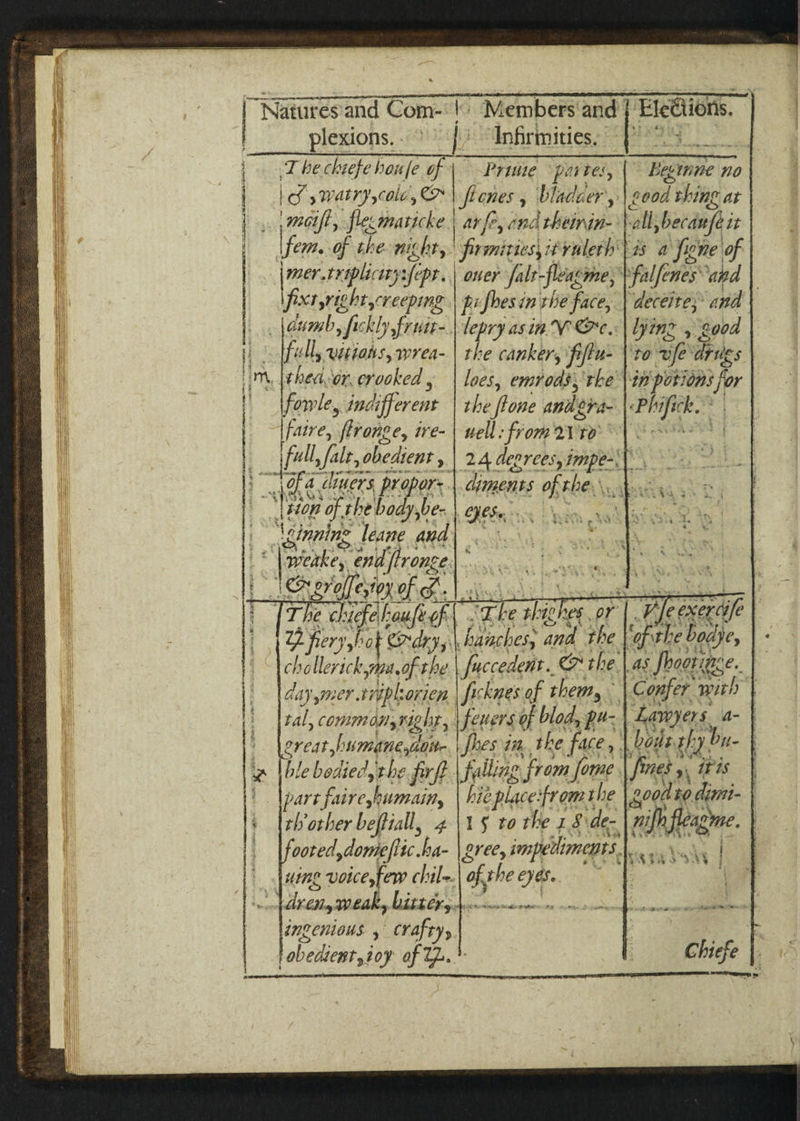 Natures and Com-
plexions.
Members and
Infirmities.
Elections.
The chiefe house of
♂, watry, cold, &
moist, flegmaticke
fem. of the night,
mer. triplicity: sept.
fixt, right, creeping
dumb, sickly, fruit-
full, vitious, wrea-
♏ thed or crooked,
fowle, indifferent
faire, stronge, ire-
full, salt, obedient,
of a diuers propor-
tion of the body, be-
ginning leane and
weake, end stronge
& grosse, ioy of ♂.
Priuie partes,
stones, bladder,
arse, and their in-
firmities, it ruleth
ouer salt-fleagme,
pushes in the face,
lepry as in ♈ &c.
the canker, fistu-
loes, emrods, the
the stone and gra-
uell: from 21 to
24 degrees, impe-
diments of the
eyes.
Beginne no
good thing at
all, because it
is a signe of
falsenes and
deceite, and
lying, good
to vse drugs
in potions for
Phisick.
The chiefe house of
♃ fiery, hot & dry,
chollerick, ma. of the
day, mer. trip. orien
tal, common, right,
great, humane, dou-
♐ ble bodied, the first
part faire, humain,
th'other bestiall, 4
footed, domestic. ha-
uing voice, few chil-
dren, weak, bitter,
ingenious, crafty,
obedient, ioy of ♃.
The thighes or
hanches, and the
succedent. & the
sicknes of them,
feuers of blod, pu-
shes in the face,
falling from some
hie place: from the
15 to the 18 de-
gree, impediments
of the eyes.
Vse exercise
of the bodye,
as shootinge.
Confer with
Lawyers a-
bout thy bu-
sines, it is
good to dimi-
nish fleagme.
Chiefe